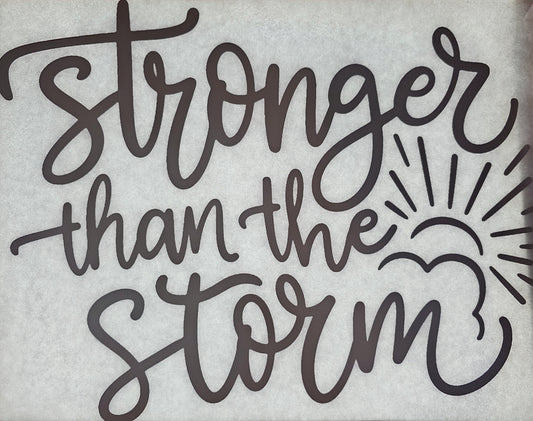 stronger
than the
storm